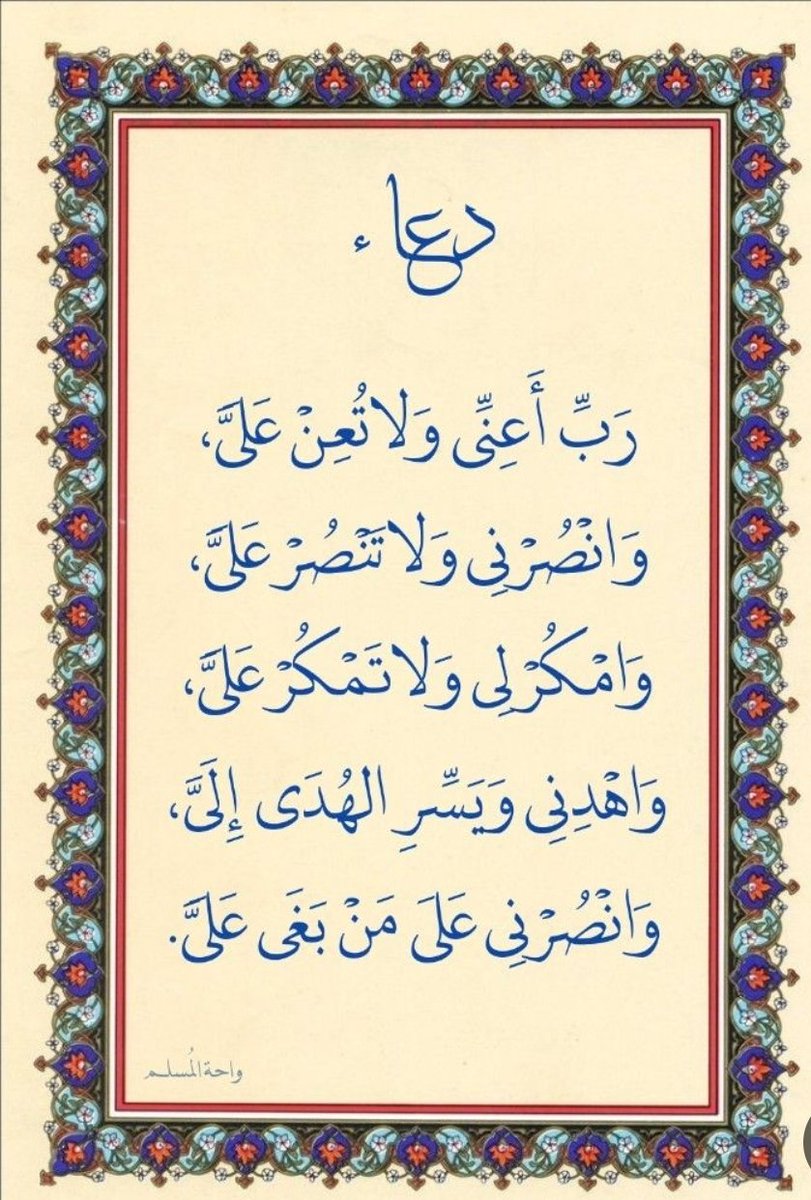 دعاء
رَبِّ أَعِنِّى وَلَا تُعِنْ عَلَىَّ،
وَانْصُرْنِى وَلَا تَنْصُرْ عَلَىَّ،
وَامْكُرْ لِى وَلَا تَمْكُرْ عَلَىَّ،
وَاهْدِنِى وَيَسِّرِ الهُدَى إِلَىَّ،
وَانْصُرْنِى عَلَى مَنْ بَغَى عَلَىَّ.
واحة المُسلم